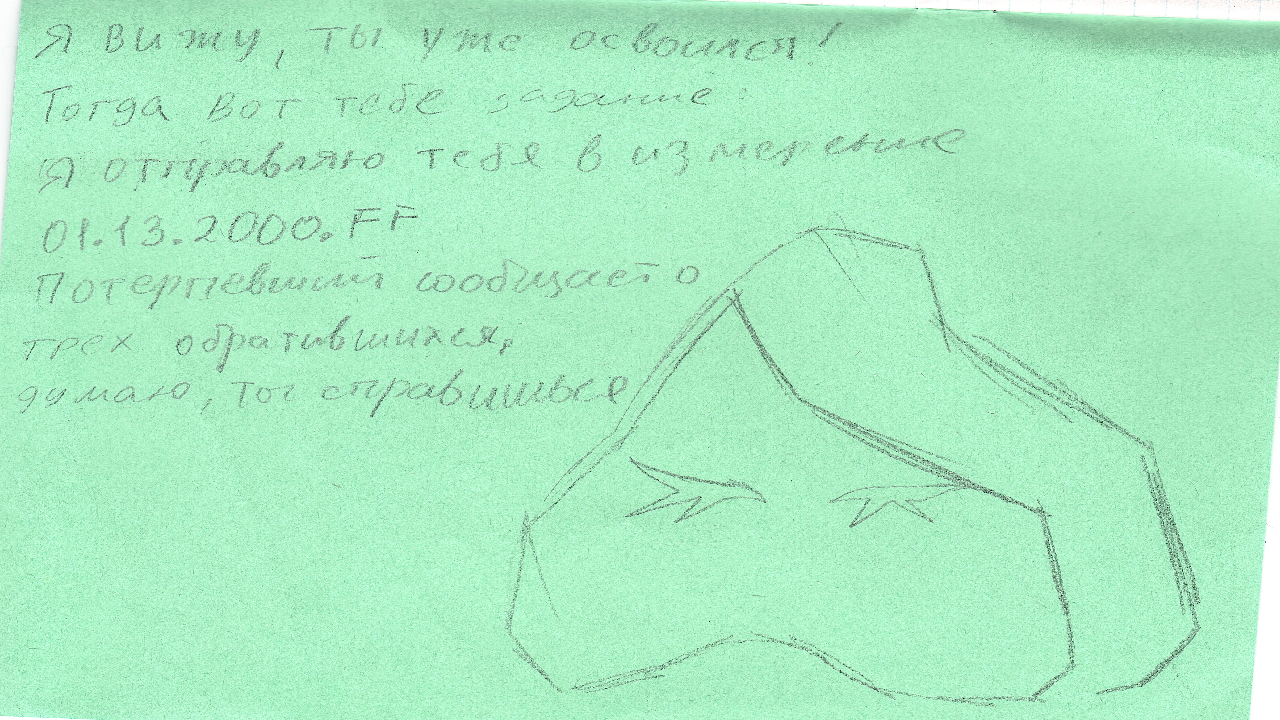 Я вижу, ты уже освоился!
Тогда вот тебе задание:
Я отправляю тебя в измерение
01.13.2000.FF
Потерпевший сообщает о
трех обратившихся,
думаю, ты справишься